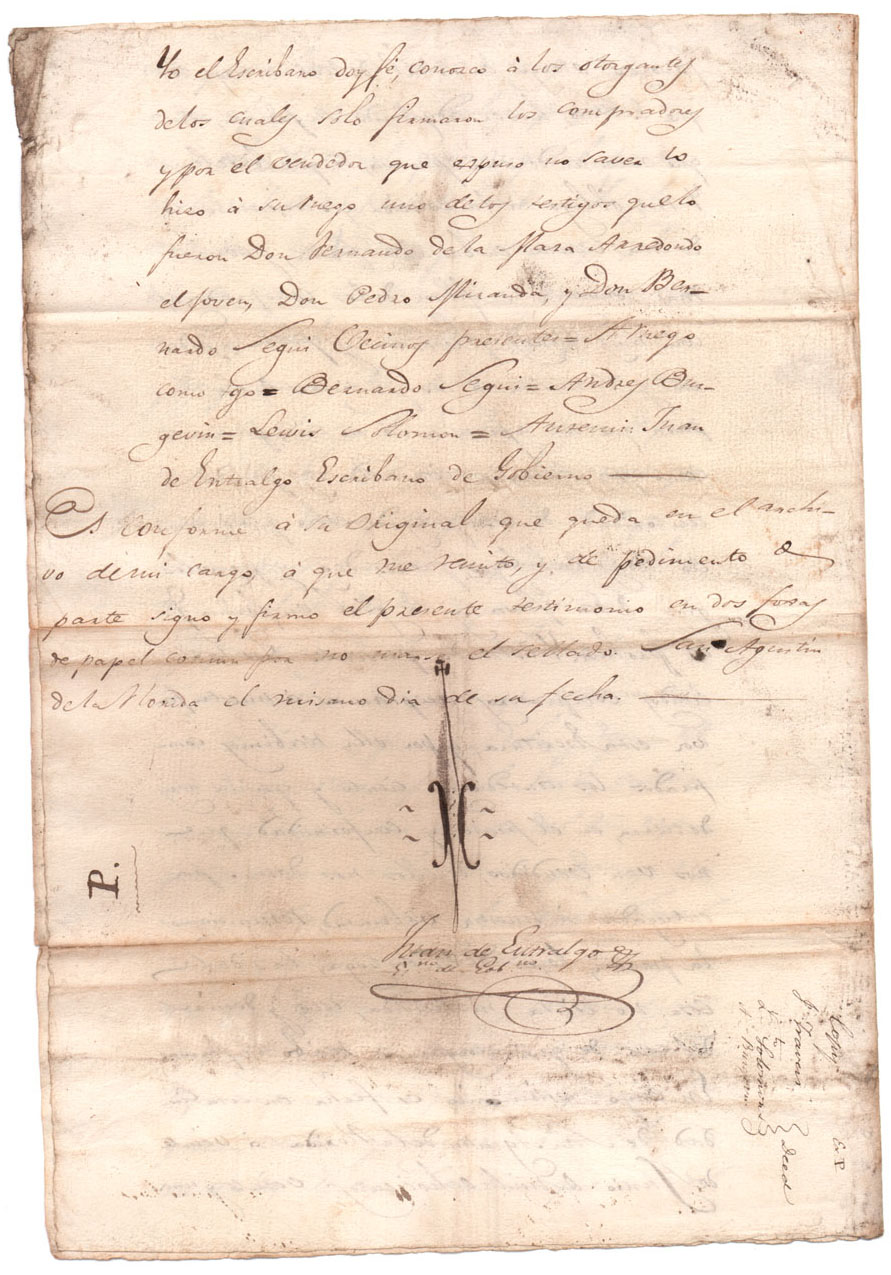 Yo el Escribano doy fé, conosco à los otorgantes
delos cuales solo firmaron los compradores
y por el vendedor que espuso no saver lo
hizo à su ruego uno delos testigos que lo
fueron Don Fernando de la Maza Arredondo
el joven, Don Pedro Miranda, y Don Ber-
nardo Segui Vecinos presentes = A ruego
como tgo = Bernardo Segui = Andres Bur-
gevin = Lewis Solomon = Juan
de Entralgo Escribano de Gobierno
Es conforme à su original que queda en el archi-
vo de mi cargo, à que me remito, y de pedimento de
parte signo y firmo el presente testimonio en dos foxas
de papel comun por no usarse el sellado. San Agustin
de la Florida el mismo dia de su fecha.
P.
Juan de Entralgo
Esno de Gobno
Copy
F. Travers
to
L. Solomons
A. Burgevin
Deed